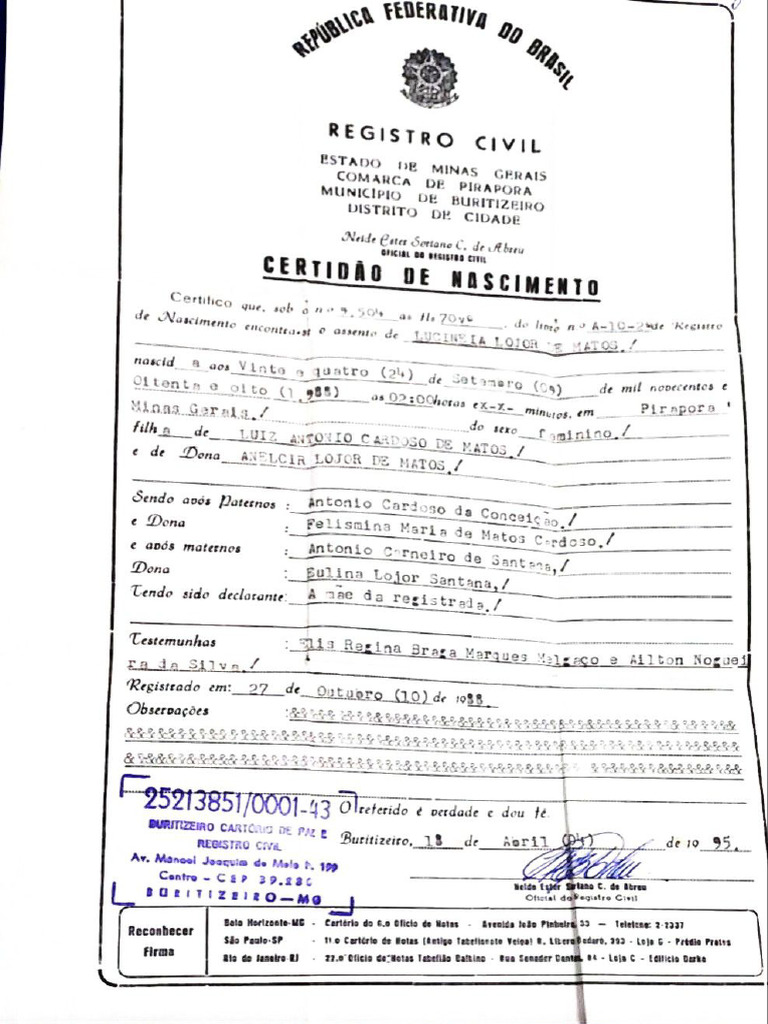 REPÚBLICA FEDERATIVA DO BRASIL
REGISTRO CIVIL
ESTADO DE MINAS GERAIS
COMARCA DE PIRAPORA
MUNICIPIO DE BURITIZEIRO
DISTRITO DE CIDADE
Neide Ester Soriano C. de Abreu
OFICIAL DO REGISTRO CIVIL
CERTIDÃO DE NASCIMENTO
Certifico que, sob o n.º 9.504 as fls 70vº do livro n.º A-10- de Registro
de Nascimento encontra-se o assento de LUCINEIA LOJOR DE MATOS./
nascid a aos Vinte e quatro (24) de Setembro (09) de mil novecentos e
Oitenta e oito (1.988) as 02:00 horas e x-x- minutos, em Pirapora
Minas Gerais./ do sexo feminino./
filha de LUIZ ANTONIO CARDOSO DE MATOS./
e de Dona ANELCIR LOJOR DE MATOS./
Sendo avós Paternos : Antonio Cardoso da Conceição./
e Dona : Felismina Maria de Matos Cardoso./
e avós maternos : Antonio Carneiro de Santana,/
Dona : Eulina Lojor Santana,/
Tendo sido declarante: A mãe da registrada./
Testemunhas : Elis Regina Braga Marques Melgaço e Ailton Noguei
ra da Silva./
Registrado em: 27 de Outubro (10) de 1988.
Observações :
25213851/0001-43
BURITIZEIRO CARTÓRIO DE PAZ E
REGISTRO CIVIL
Av. Manoel Joaquim de Melo N. 199
Centro - CEP 39.280
BURITIZEIRO-MG
O referido é verdade e dou fé.
Buritizeiro, 18 de Abril (04) de 1995.
Neide Ester Soriano C. de Abreu
Oficial do Registro Civil
Reconhecer Firma
Belo Horizonte-MG - Cartório do 6.o Ofício de Notas - Avenida João Pinheiro, 33 - Telefone: 2-2337
São Paulo-SP - 11.o Cartório de Notas (Antigo Tabelionato Veiga) R. Líbero Badaro, 293 - Loja G - Prédio Prates
Rio de Janeiro-RJ - 22.º Ofício de Notas Tabelião Balbino - Rua Senador Dantas, 84 - Loja C - Edifício Darke